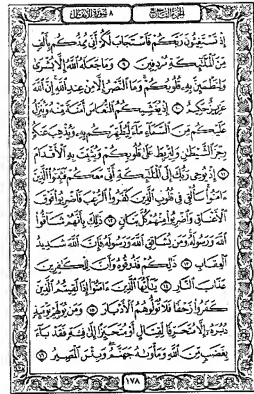 الجزء التاسع ٨ سورة الأنفال
إِذْ تَسْتَغِيثُونَ رَبَّكُمْ فَٱسْتَجَابَ لَكُمْ أَنِّى مُمِدُّكُم بِأَلْفٍ
مِّنَ ٱلْمَلَٰٓئِكَةِ مُرْدِفِينَ ٩ وَمَا جَعَلَهُ ٱللَّهُ إِلَّا بُشْرَىٰ
وَلِتَطْمَئِنَّ بِهِۦ قُلُوبُكُمْ وَمَا ٱلنَّصْرُ إِلَّا مِنْ عِندِ ٱللَّهِ إِنَّ ٱللَّهَ
عَزِيزٌ حَكِيمٌ ١٠ إِذْ يُغَشِّيكُمُ ٱلنُّعَاسَ أَمَنَةً مِّنْهُ وَيُنَزِّلُ
عَلَيْكُم مِّنَ ٱلسَّمَآءِ مَآءً لِّيُطَهِّرَكُم بِهِۦ وَيُذْهِبَ عَنكُمْ
رِجْزَ ٱلشَّيْطَٰنِ وَلِيَرْبِطَ عَلَىٰ قُلُوبِكُمْ وَيُثَبِّتَ بِهِ ٱلْأَقْدَامَ
١١ إِذْ يُوحِى رَبُّكَ إِلَى ٱلْمَلَٰٓئِكَةِ أَنِّى مَعَكُمْ فَثَبِّتُوا۟ ٱلَّذِينَ
ءَامَنُوا۟ سَأُلْقِى فِى قُلُوبِ ٱلَّذِينَ كَفَرُوا۟ ٱلرُّعْبَ فَٱضْرِبُوا۟ فَوْقَ
ٱلْأَعْنَاقِ وَٱضْرِبُوا۟ مِنْهُمْ كُلَّ بَنَانٍ ١٢ ذَٰلِكَ بِأَنَّهُمْ شَآقُّوا۟
ٱللَّهَ وَرَسُولَهُۥ وَمَن يُشَاقِقِ ٱللَّهَ وَرَسُولَهُۥ فَإِنَّ ٱللَّهَ شَدِيدُ
ٱلْعِقَابِ ١٣ ذَٰلِكُمْ فَذُوقُوهُ وَأَنَّ لِلْكَٰفِرِينَ
عَذَابَ ٱلنَّارِ ١٤ يَٰٓأَيُّهَا ٱلَّذِينَ ءَامَنُوٓا۟ إِذَا لَقِيتُمُ ٱلَّذِينَ
كَفَرُوا۟ زَحْفًا فَلَا تُوَلُّوهُمُ ٱلْأَدْبَارَ ١٥ وَمَن يُوَلِّهِمْ يَوْمَئِذٍ
دُبُرَهُۥٓ إِلَّا مُتَحَرِّفًا لِّقِتَالٍ أَوْ مُتَحَيِّزًا إِلَىٰ فِئَةٍ فَقَدْ بَآءَ
بِغَضَبٍ مِّنَ ٱللَّهِ وَمَأْوَىٰهُ جَهَنَّمُ وَبِئْسَ ٱلْمَصِيرُ ١٦
١٧٨